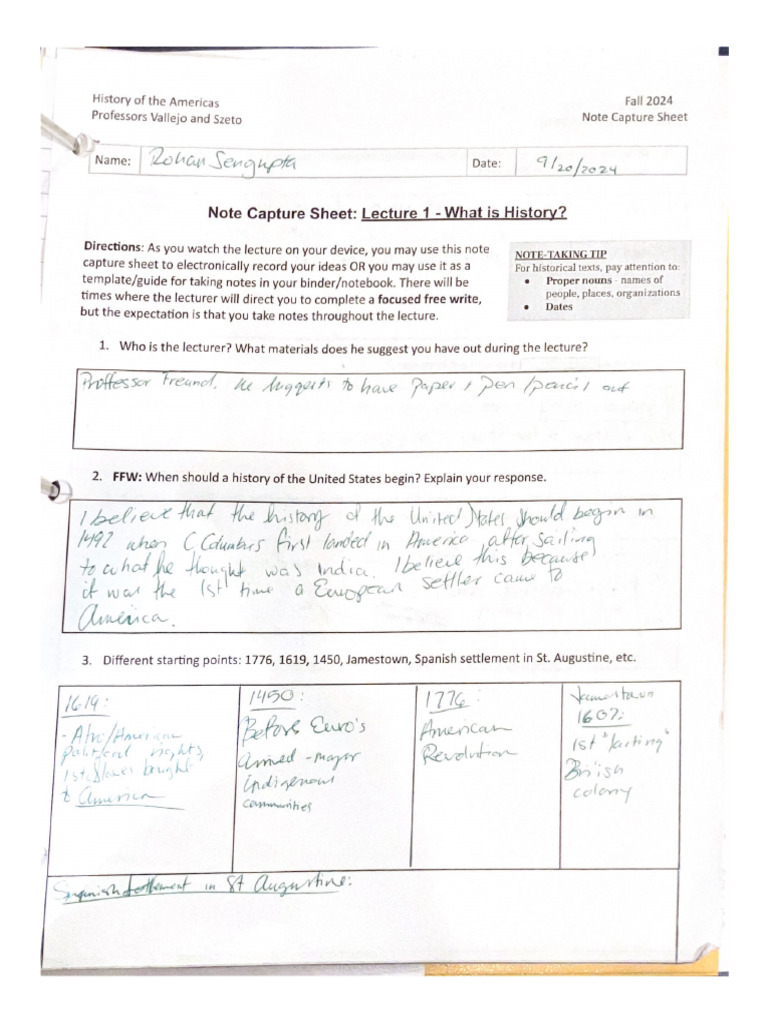 History of the Americas
Fall 2024
Professors Vallejo and Szeto
Note Capture Sheet
Name: Rohan Sengupta
Date: 9/20/2024
Note Capture Sheet: Lecture 1 - What is History?
Directions: As you watch the lecture on your device, you may use this note
capture sheet to electronically record your ideas OR you may use it as a
template/guide for taking notes in your binder/notebook. There will be
times where the lecturer will direct you to complete a focused free write,
but the expectation is that you take notes throughout the lecture.
NOTE-TAKING TIP
For historical texts, pay attention to:
• Proper nouns - names of
people, places, organizations
• Dates
1. Who is the lecturer? What materials does he suggest you have out during the lecture?
Proffessor Freund. He suggests to have paper, pen/pencil out
2. FFW: When should a history of the United States begin? Explain your response.
I believe that the history of the United States should begin in
1492 when C Columbus first landed in America after sailing
to what he thought was India. I believe this because
it was the 1st time a European settler came to
America.
3. Different starting points: 1776, 1619, 1450, Jamestown, Spanish settlement in St. Augustine, etc.
1619:
- Afro/American
political rights,
1st slaves bought
to America
1450:
Before Euro's
arrived - major
Indigenous
communities
1776:
American
Revolution
Jamestown
1607:
1st "lasting"
British
colony
Spanish Settlement in St Augustine: